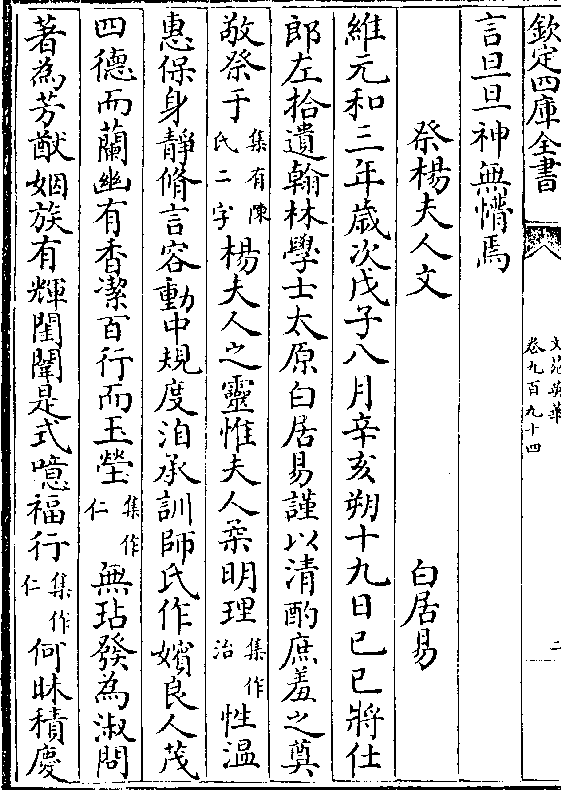 欽定四庫全書
文苑英華
卷九百九十四
二
言旦旦神無懵焉
祭楊夫人文 白居易
維元和三年歲次戊子八月辛亥朔十九日己巳將仕
郎左拾遺翰林學士太原白居易謹以清酌庶羞之奠
敬祭于集有陳氏二字楊夫人之靈惟夫人柔明理集作治性溫
惠保身靜脩言容動中規度洎承訓師氏作嬪良人茂
四德而蘭幽有香潔百行而玉瑩集作仁無玷發為淑問
著為芳猷姻族有輝閨闈是式噫福行集作仁何昧積慶